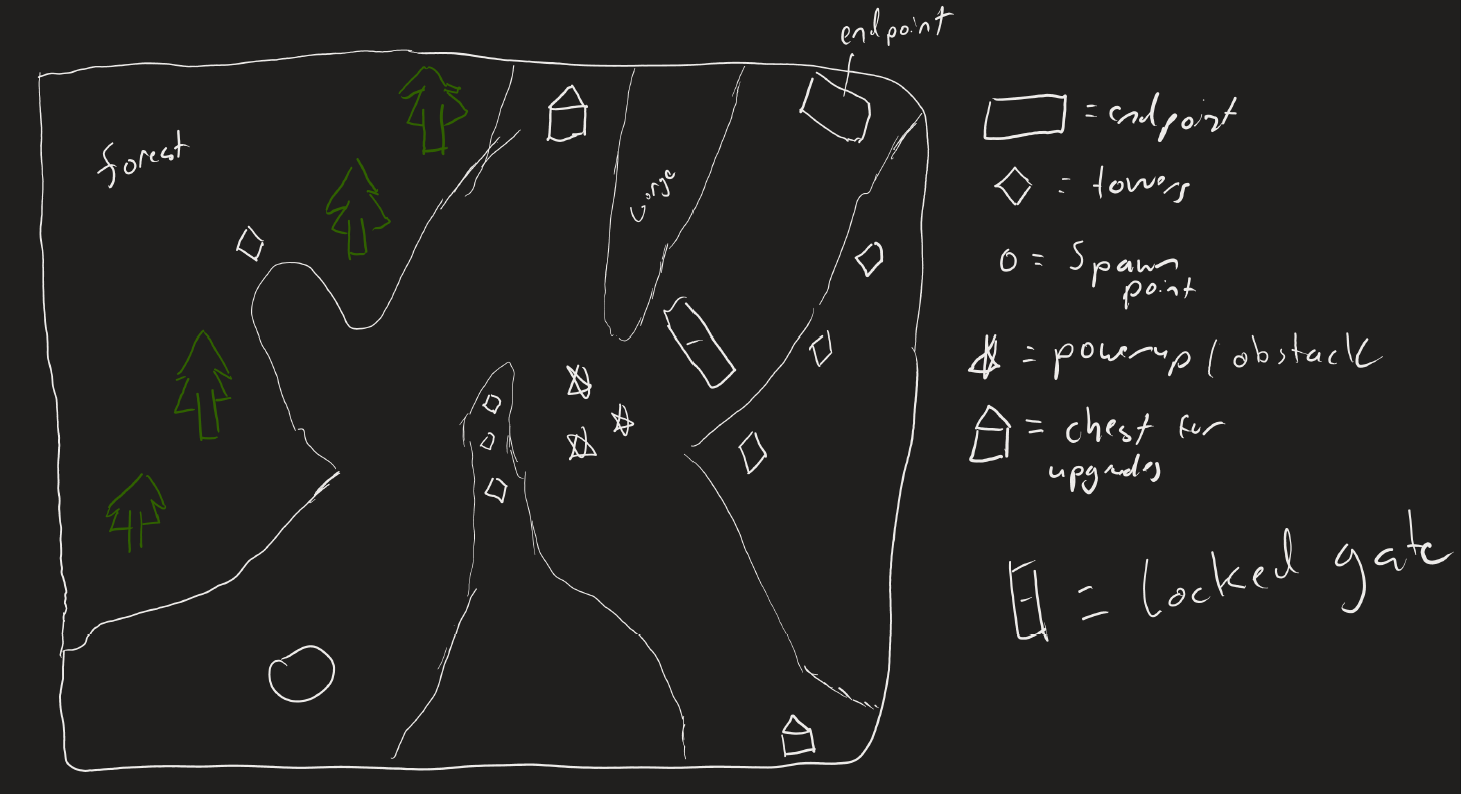 endpoint
forest
Gorge
= endpoint
= towers
= Spawn
point
= powerup / obstacle
= chest for
upgrades
= locked gate